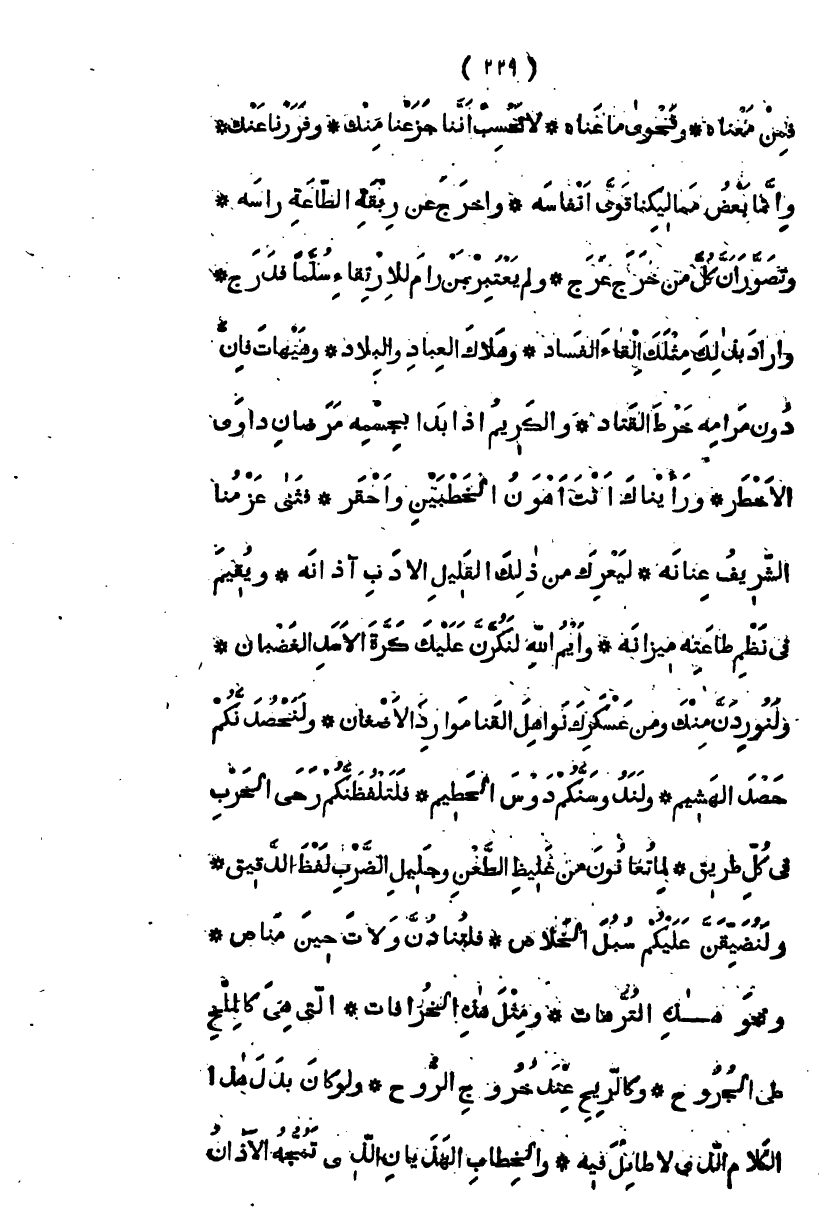 ( ٢٢٩ )
فَمِنْ مَعْناه * وفَحْوى ما عَناه * لا تَحْسِبْ أَنَّنا جَزَعْنا مِنْك * وفَرَرْنا عَنْك *
وإنَّما بَعْضُ مَماليكِنا قَوىَّ أَنْفاسَه * واخرَجَ عن رِبْقَةِ الطّاعَةِ راسَه *
وتَصَوَّرَ أَنَّ كُلَّ من خَرَجَ عَرَج * ولم يَعْتَبِرْ بمَنْ رامَ للاِرْتِقاءِ سُلَّمًا فدَرَج *
وارادَ بذٰلِكَ مِثْلَكَ إلْقاءَ الفَساد * وهَلاكَ العِبادِ والبِلاد * وهَيْهاتَ فاِنَّ
دُون مَرامِه خَرْطَ القَتاد * والكَرِيمُ اذا بَدا بجِسْمِه مَرَضانِ داوَى
الاَخْطَر * ورَأَيْناكَ اَنْتَ اَهْوَنُ الخَطْبَيْنِ واَحْقَر * فثَنٰى عَزْمُنا
الشَّرِيفُ عِنانَه * ليَعْرِكَ من ذٰلِكَ القَلِيلِ الادَبِ آذانَه * ويُقِيمَ
فى نَظْمِ طاعَتِه مِيزانَه * وأَيْمُ اللّٰهِ لنَكُرَّنَّ عَلَيْكَ كَرَّةَ الاَسَدِ الغَضْبان *
ولَنُورِدَنَّ مِنْكَ ومن عَسْكَرِكَ نَواهِلَ القَنا مَوارِدَ الاَضْغان * ولَنَحْصُدَنَّكم
حَصْدَ الهَشِيم * ولَنَدُوسَنَّكم دَوْسَ الحَطِيم * فلَتَلْفِظَنَّكُمْ رَحَى الحَرْبِ
فى كُلِّ طرِيق * لِما تُعانُونَ من غَلِيظِ الطَّعْنِ وجَلِيلِ الضَّرْبِ لَفْظَ الدَّقِيق *
ولَنُضَيِّقَنَّ عَلَيْكُم سُبُلَ الخَلاص * فلتُنادُنَّ ولاتَ حِينَ مَناص *
ونحْوَ هــذِهِ التُّرَّهات * ومِثْلَ هٰذِه الخُرافات * الّتى هِىَ كالمِلْحِ
على الجُرُوح * وكالرِّيحِ عِنْدَ خُرُوجِ الرُّوح * ولو كانَ بدَلَ هٰذا
الكَلامِ الّذى لا طائِلَ فيه * والخِطابِ الهَذَيانِ الّذِى تَمُجُّهُ الآذانُ